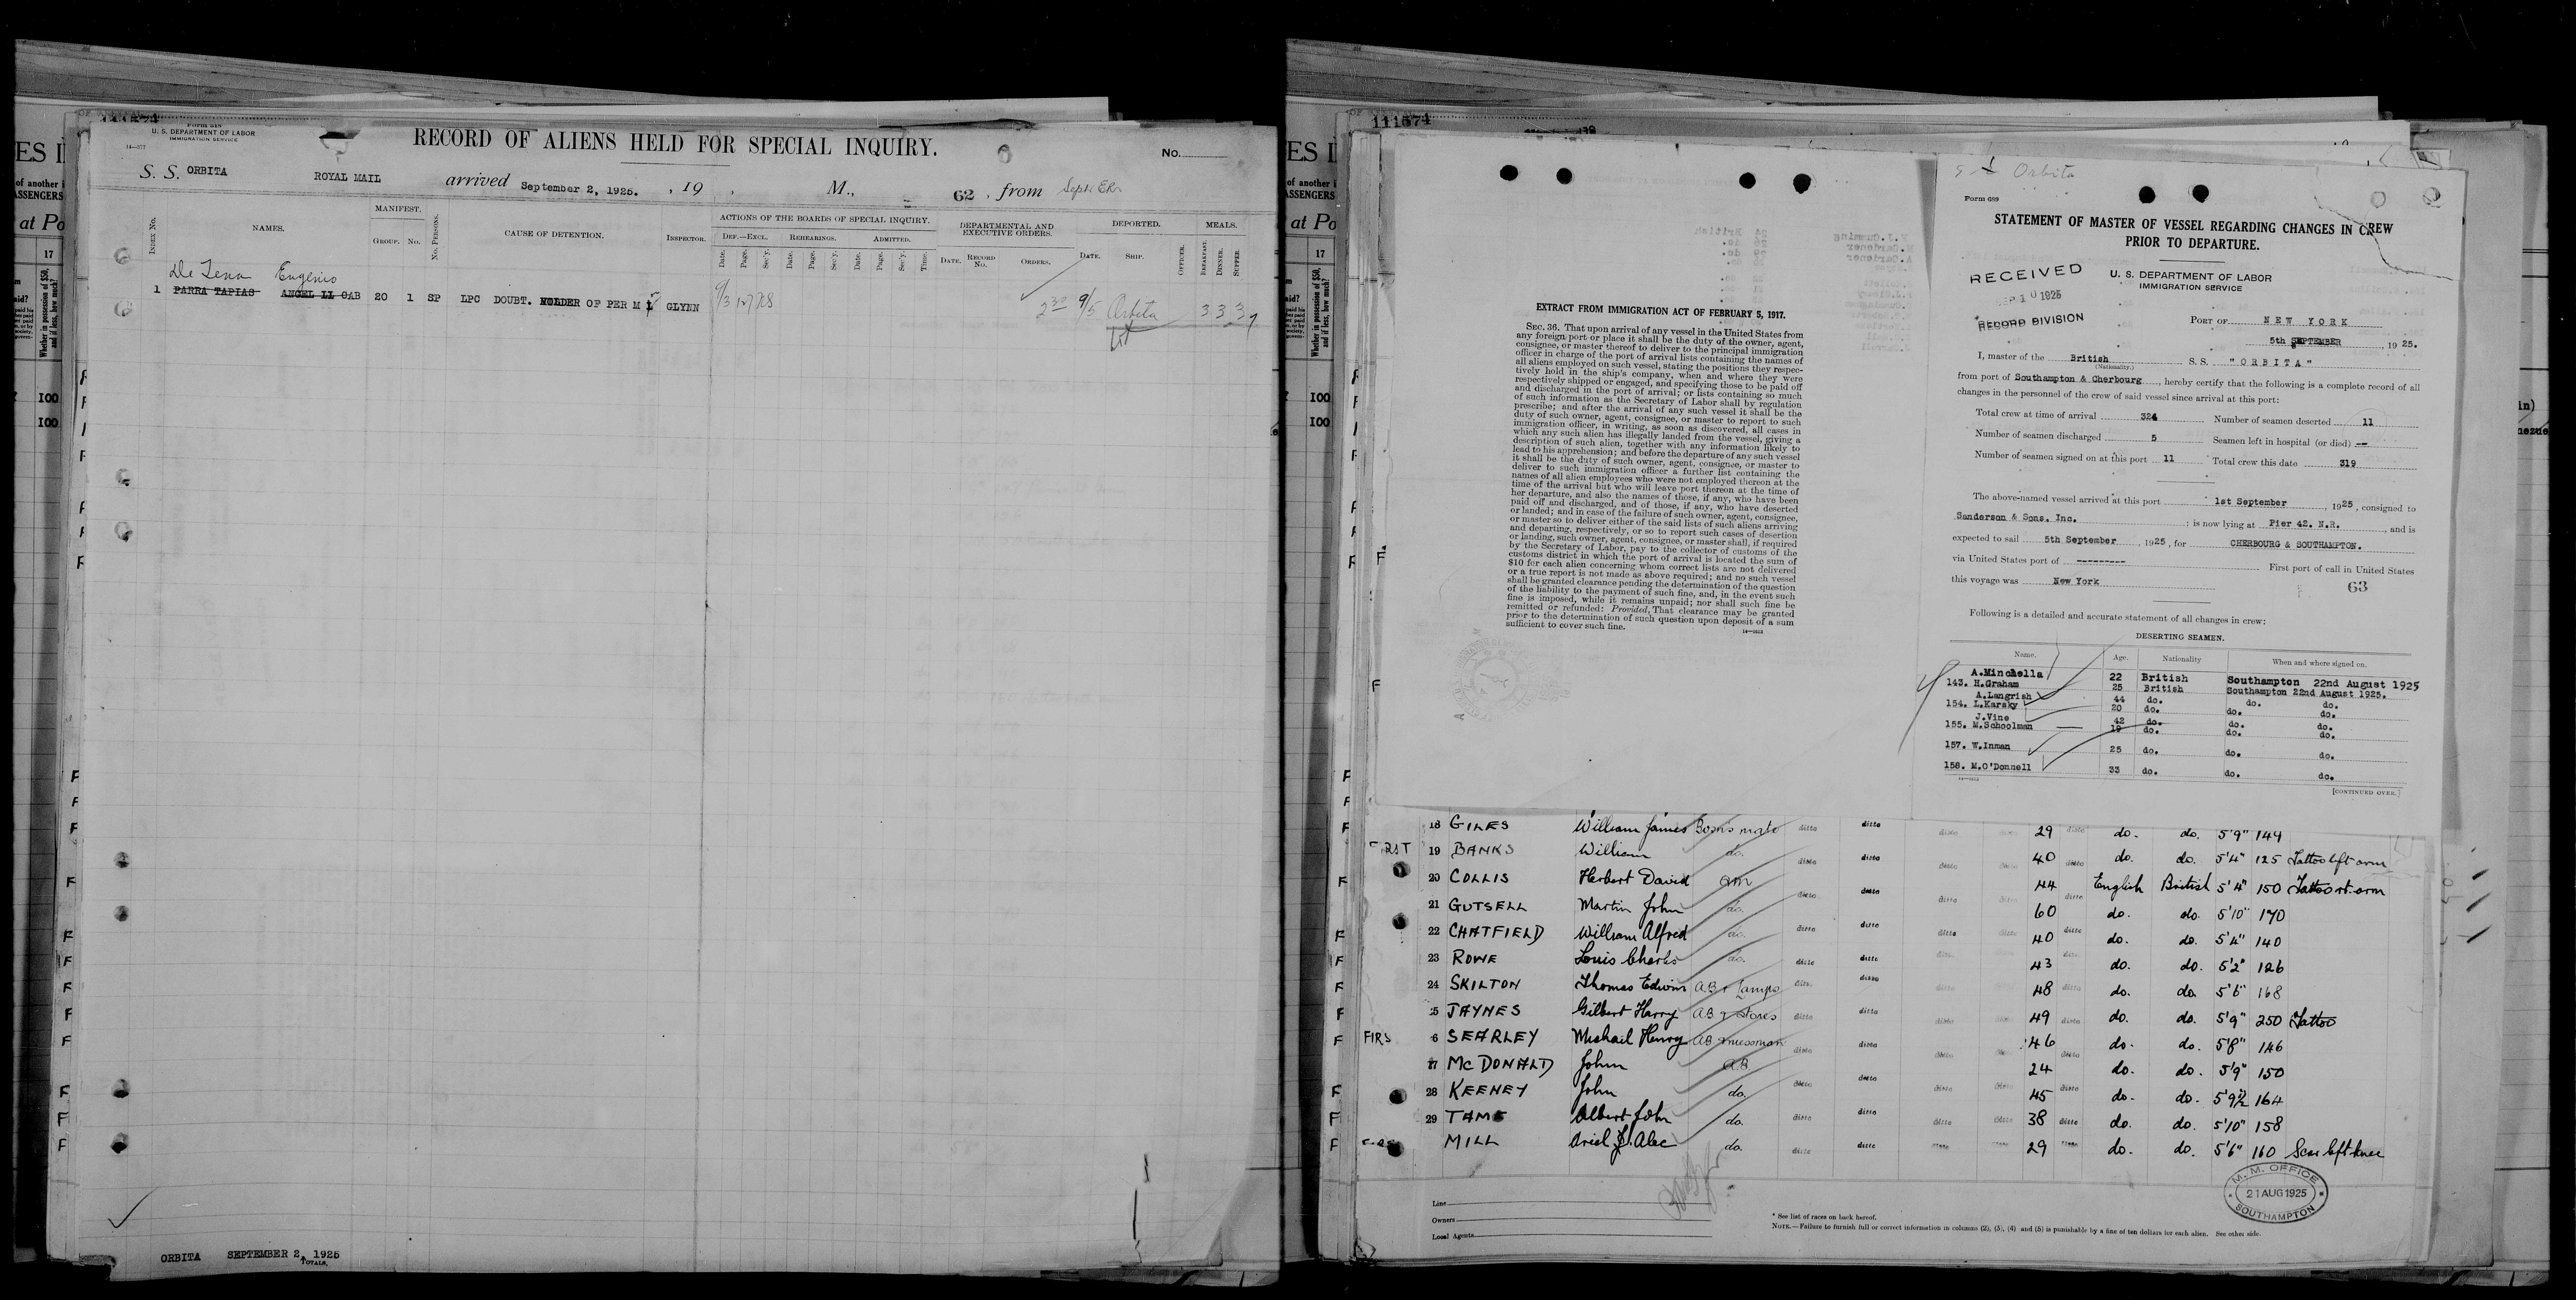 111574
Form 618
U. S. DEPARTMENT OF LABOR
IMMIGRATION SERVICE
14—577
RECORD OF ALIENS HELD FOR SPECIAL INQUIRY.
No.
S. S. ORBITA ROYAL MAIL arrived September 2, 1925. , 19 , M., 62 , from
INDEX No. NAMES. MANIFEST. GROUP. No. No. PERSONS. CAUSE OF DETENTION. INSPECTOR. ACTIONS OF THE BOARDS OF SPECIAL INQUIRY. DEPARTMENTAL AND EXECUTIVE ORDERS. DEPORTED. MEALS.
DEF.—EXCL. REHEARINGS. ADMITTED.
Date. Page. Sec'y. Date. Page. Sec'y. Date. Page. Sec'y. Time. DATE. RECORD No. ORDERS. DATE. SHIP. OFFICER. BREAKFAST. DINNER. SUPPER.
De Tena Eugenio
1 PARRA TAPIAS ANGEL LI CAB 20 1 SP LPC DOUBT. HOLDER OF PER M GLYNN 9/3 127 9/5 Orbita 3 3 3
ORBITA SEPTEMBER 2, 1925
TOTALS,
ES I
of another
ASSENGERS
at Po
17
Whether in possession of $50, and if less, how much?
100
100
111574
EXTRACT FROM IMMIGRATION ACT OF FEBRUARY 5, 1917.
SEC. 36. That upon arrival of any vessel in the United States from
any foreign port or place it shall be the duty of the owner, agent,
consignee, or master thereof to deliver to the principal immigration
officer in charge of the port of arrival lists containing the names of
all aliens employed on such vessel, stating the positions they respec-
tively hold in the ship's company, when and where they were
respectively shipped or engaged, and specifying those to be paid off
and discharged in the port of arrival; or lists containing so much
of such information as the Secretary of Labor shall by regulation
prescribe; and after the arrival of any such vessel it shall be the
duty of such owner, agent, consignee, or master to report to such
immigration officer, in writing, as soon as discovered, all cases in
which any such alien has illegally landed from the vessel, giving a
description of such alien, together with any information likely to
lead to his apprehension; and before the departure of any such vessel
it shall be the duty of such owner, agent, consignee, or master to
deliver to such immigration officer a further list containing the
names of all alien employees who were not employed thereon at the
time of the arrival but who will leave port thereon at the time of
her departure, and also the names of those, if any, who have been
paid off and discharged, and of those, if any, who have deserted
or landed; and in case of the failure of such owner, agent, consignee,
or master so to deliver either of the said lists of such aliens arriving
and departing, respectively, or so to report such cases of desertion
or landing, such owner, agent, consignee, or master shall, if required
by the Secretary of Labor, pay to the collector of customs of the
customs district in which the port of arrival is located the sum of
$10 for each alien concerning whom correct lists are not delivered
or a true report is not made as above required; and no such vessel
shall be granted clearance pending the determination of the question
of the liability to the payment of such fine, and, in the event such
fine is imposed, while it remains unpaid; nor shall such fine be
remitted or refunded: Provided, That clearance may be granted
prior to the determination of such question upon deposit of a sum
sufficient to cover such fine.
Orbita
Form 689
STATEMENT OF MASTER OF VESSEL REGARDING CHANGES IN CREW
PRIOR TO DEPARTURE.
RECEIVED
U. S. DEPARTMENT OF LABOR
IMMIGRATION SERVICE
SEP 10 1925
RECORD DIVISION
PORT OF NEW YORK
5th SEPTEMBER , 19 25.
I, master of the British S. S. "ORBITA"
(Nationality.)
from port of Southampton & Cherbourg , hereby certify that the following is a complete record of all
changes in the personnel of the crew of said vessel since arrival at this port:
Total crew at time of arrival 324 Number of seamen deserted 11
Number of seamen discharged 5 Seamen left in hospital (or died) --
Number of seamen signed on at this port 11 Total crew this date 319
The above-named vessel arrived at this port 1st September , 1925 , consigned to
Sanderson & Sons, Inc. ; is now lying at Pier 42. N.R. , and is
expected to sail 5th September , 1925 , for CHERBOURG & SOUTHAMPTON.
via United States port of --------- First port of call in United States
this voyage was New York
63
Following is a detailed and accurate statement of all changes in crew:
DESERTING SEAMEN.
Name. Age. Nationality When and where signed on.
A.Minchella 22 British Southampton 22nd August 1925
143. H.Graham 25 British Southampton 22nd August 1925.
A.Langrish 44 do. do. do.
154. L.Karsky 20 do. do. do.
J.Vine 42 do. do. do.
155. M.Schoolman 19 do. do. do.
157. W.Inman 25 do. do. do.
158. M.O'Donnell 33 do. do. do.
[CONTINUED OVER.]
18 GILES William James Bosns mate ditto ditto 29 ditto do. do. 5'9" 149
19 BANKS William do. ditto ditto 40 ditto do. do. 5'4" 125 Tattoo left arm
20 COLLIS Herbert David QM ditto ditto 44 English British 5'4" 150 Tattoo rt arm
21 GUTSELL Martin John do. ditto ditto 60 ditto do. do. 5'10" 170
22 CHATFIELD William Alfred do. ditto ditto 40 ditto do. do. 5'4" 140
23 ROWE Louis Charles do. ditto ditto 43 do. do. 5'2" 126
24 SKILTON Thomas Edwin AB & Lamps ditto ditto 48 ditto do. do. 5'6" 168
25 JAYNES Gilbert Harry AB & Stores ditto ditto 49 ditto do. do. 5'9" 250 Tattoo
6 SEARLEY Michail Henry AB & messman ditto ditto 46 do. do. 5'8" 146
27 MCDONALD John AB ditto 24 ditto do. do. 5'9" 150
28 KEENEY John do. ditto ditto 45 ditto do. do. 5'9½ 164
29 TAME Albert John do. ditto ditto 38 ditto do. do. 5'10" 158
MILL Ariel J. Alec do. ditto ditto 29 do. do. 5'6" 160 Scar left knee
M. M. OFFICE
21 AUG 1925
SOUTHAMPTON
Line
Owners
Local Agents
* See list of races on back hereof.
NOTE.—Failure to furnish full or correct information in columns (2), (3), (4) and (5) is punishable by a fine of ten dollars for each alien. See other side.